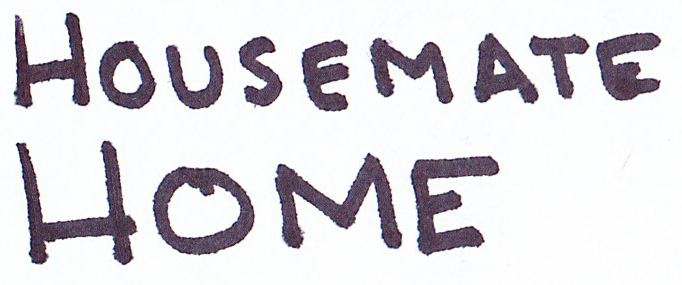 HOUSEMATE
HOME